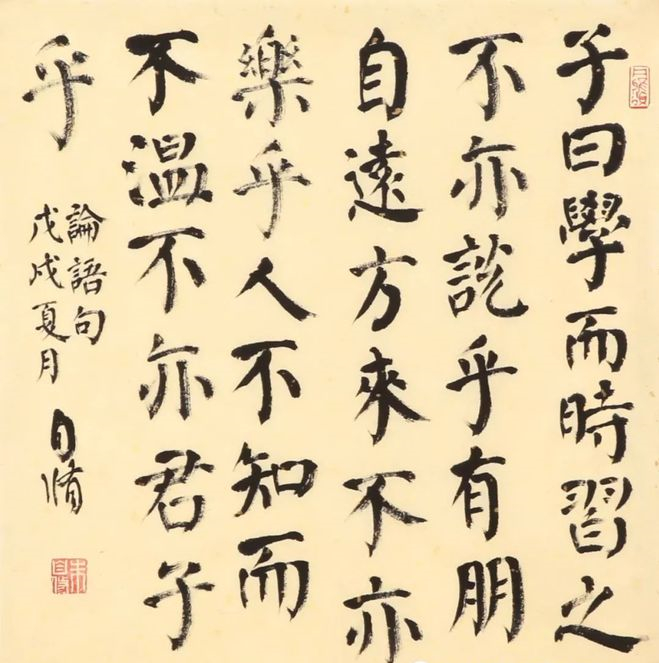 子曰學而時習之
不亦説乎有朋
自遠方來不亦
樂乎人不知而
不温不亦君子
乎
論語句
戊戌夏月
自脩